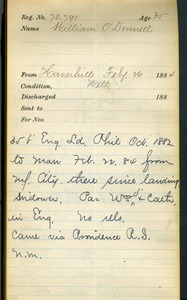 Reg. No. 70,791 Age 35
Name William O'Donnell
From Haverhill Feb. 26 1884
Condition, Well
Discharged 188
Sent to
For Nos.
35 b Eng Ld. Phil Oct. 1882
to Man Feb. 22. 84 from
N.Y. City, there since landing
Widower, Par Wm & Cath.
in Eng. No rels.
Came via Providence R.I.
N.M.